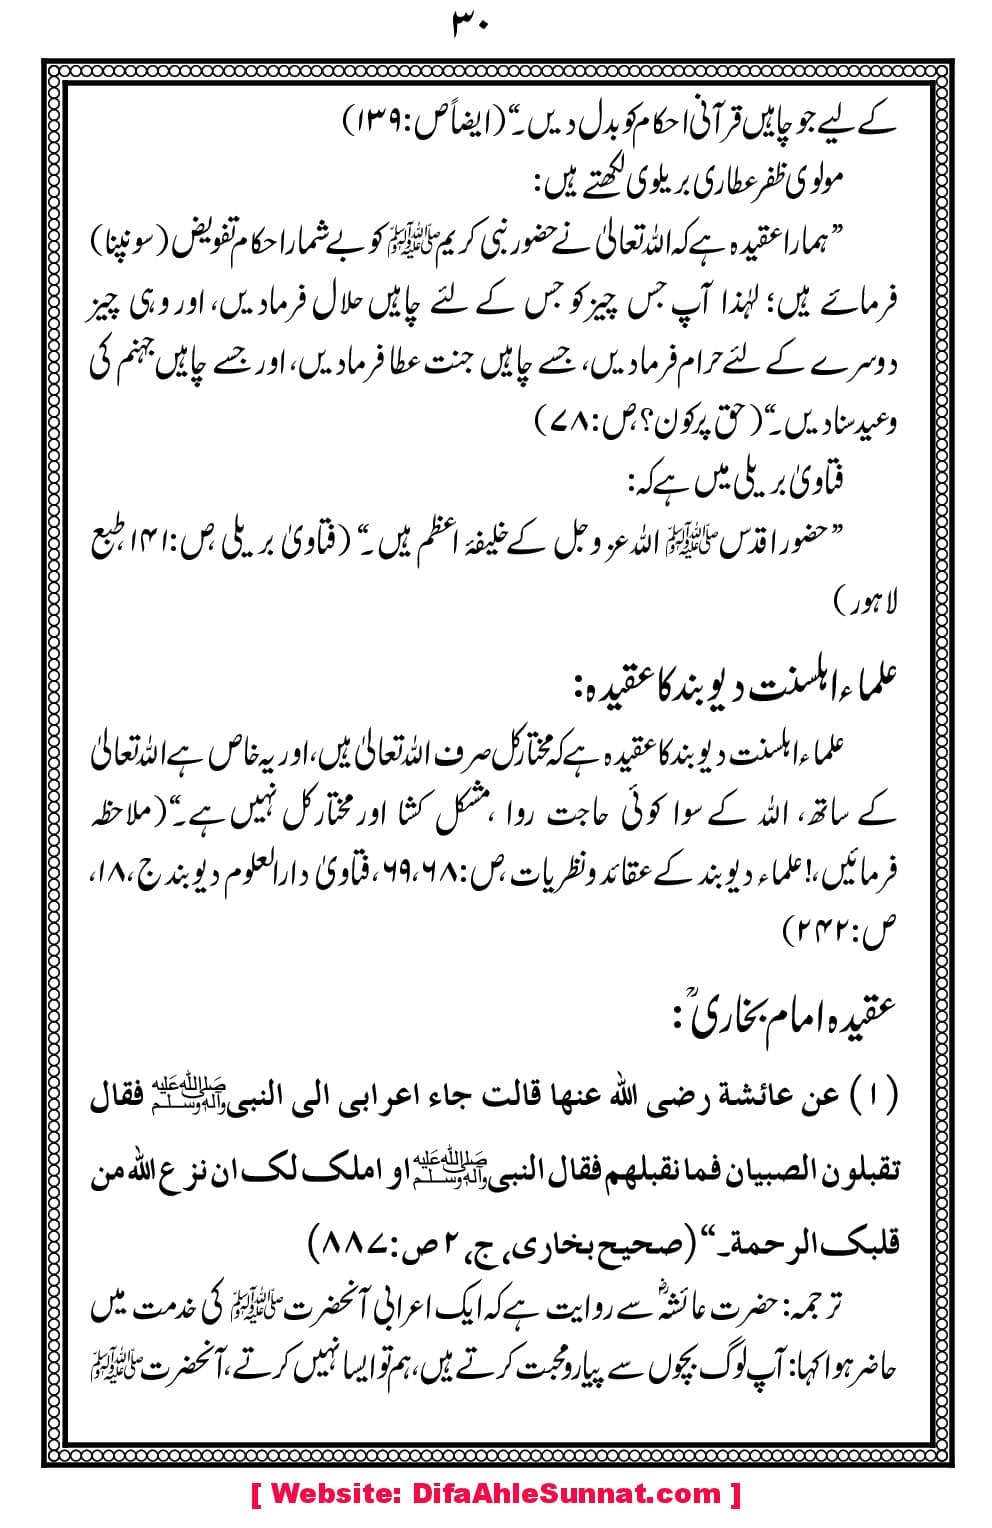 ۳۰
کے لیے جو چاہیں قرآنی احکام کو بدل دیں۔“ (ایضاً ص:۱۳۹)
مولوی ظفر عطاری بریلوی لکھتے ہیں:
”ہمارا عقیدہ ہے کہ اللہ تعالیٰ نے حضور نبی کریم ﷺ کو بے شمار احکام تفویض (سونپنا)
فرمائے ہیں؛ لہٰذا آپ جس چیز کو جس کے لئے چاہیں حلال فرمادیں، اور وہی چیز
دوسرے کے لئے حرام فرمادیں، جسے چاہیں جنت عطا فرمادیں، اور جسے چاہیں جہنم کی
وعید سنا دیں۔“ (حق پر کون؟ ص:۷۸)
فتاویٰ بریلی میں ہے کہ:
”حضور اقدس ﷺ اللہ عز وجل کے خلیفۂ اعظم ہیں۔“ (فتاویٰ بریلی، ص:۱۴۱، طبع
لاہور)
علماء اہلسنت دیوبند کا عقیدہ:
علماء اہلسنت دیوبند کا عقیدہ ہے کہ مختار کل صرف اللہ تعالیٰ ہیں، اور یہ خاص ہے اللہ تعالیٰ
کے ساتھ، اللہ کے سوا کوئی حاجت روا، مشکل کشا اور مختار کل نہیں ہے۔“ (ملاحظہ
فرمائیں،! علماء دیوبند کے عقائد ونظریات، ص:۶۸،۶۹، فتاویٰ دارالعلوم دیوبند ج،۱۸،
ص:۲۴۲)
عقیدہ امام بخاریؒ:
(۱) عن عائشة رضی اللہ عنها قالت جاء اعرابی الی النبی ﷺ فقال
تقبلون الصبیان فما نقبلهم فقال النبی ﷺ او املک لک ان نزع اللہ من
قلبک الرحمة۔“ (صحیح بخاری، ج، ۲ ص:۸۸۷)
ترجمہ: حضرت عائشہؓ سے روایت ہے کہ ایک اعرابی آنحضرت ﷺ کی خدمت میں
حاضر ہوا کہا: آپ لوگ بچوں سے پیار ومحبت کرتے ہیں، ہم تو ایسا نہیں کرتے، آنحضرت ﷺ
[ Website: DifaAhleSunnat.com ]